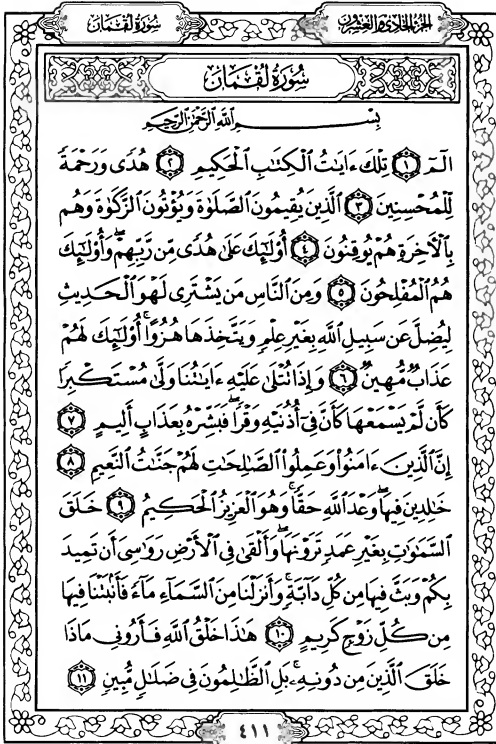 الجزء الحادي والعشرون
سُورَةُ لُقْمَان
سُورَةُ لُقْمَان
بِسْمِ اللَّهِ الرَّحْمَٰنِ الرَّحِيمِ
الٓمٓ ١ تِلْكَ ءَايَٰتُ ٱلْكِتَٰبِ ٱلْحَكِيمِ ٢ هُدًى وَرَحْمَةً
لِّلْمُحْسِنِينَ ٣ ٱلَّذِينَ يُقِيمُونَ ٱلصَّلَوٰةَ وَيُؤْتُونَ ٱلزَّكَوٰةَ وَهُم
بِٱلْءَاخِرَةِ هُمْ يُوقِنُونَ ٤ أُو۟لَٰٓئِكَ عَلَىٰ هُدًى مِّن رَّبِّهِمْ ۖ وَأُو۟لَٰٓئِكَ
هُمُ ٱلْمُفْلِحُونَ ٥ وَمِنَ ٱلنَّاسِ مَن يَشْتَرِى لَهْوَ ٱلْحَدِيثِ
لِيُضِلَّ عَن سَبِيلِ ٱللَّهِ بِغَيْرِ عِلْمٍ وَيَتَّخِذَهَا هُزُوًا ۚ أُو۟لَٰٓئِكَ لَهُمْ
عَذَابٌ مُّهِينٌ ٦ وَإِذَا تُتْلَىٰ عَلَيْهِ ءَايَٰتُنَا وَلَّىٰ مُسْتَكْبِرًا
كَأَن لَّمْ يَسْمَعْهَا كَأَنَّ فِىٓ أُذُنَيْهِ وَقْرًا ۖ فَبَشِّرْهُ بِعَذَابٍ أَلِيمٍ ٧
إِنَّ ٱلَّذِينَ ءَامَنُوا۟ وَعَمِلُوا۟ ٱلصَّٰلِحَٰتِ لَهُمْ جَنَّٰتُ ٱلنَّعِيمِ ٨
خَٰلِدِينَ فِيهَا ۖ وَعْدَ ٱللَّهِ حَقًّا ۚ وَهُوَ ٱلْعَزِيزُ ٱلْحَكِيمُ ٩ خَلَقَ
ٱلسَّمَٰوَٰتِ بِغَيْرِ عَمَدٍ تَرَوْنَهَا ۖ وَأَلْقَىٰ فِى ٱلْأَرْضِ رَوَٰسِىَ أَن تَمِيدَ
بِكُمْ وَبَثَّ فِيهَا مِن كُلِّ دَآبَّةٍ ۚ وَأَنزَلْنَا مِنَ ٱلسَّمَآءِ مَآءً فَأَنۢبَتْنَا فِيهَا
مِن كُلِّ زَوْجٍ كَرِيمٍ ١٠ هَٰذَا خَلْقُ ٱللَّهِ فَأَرُونِى مَاذَا
خَلَقَ ٱلَّذِينَ مِن دُونِهِۦ ۚ بَلِ ٱلظَّٰلِمُونَ فِى ضَلَٰلٍ مُّبِينٍ ١١
٤١١